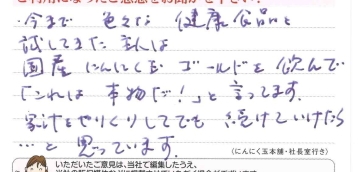 ・今まで 色々な 健康食品を
試してきた 主人は
国産にんにく玉ゴールドを 飲んで
「これは 本物だ!」と 言ってます。
家計をやりくりしてでも 続けていけたら
…と 思っています。
(にんにく玉本舗・社長室行き)
いただいたご意見は、当社で編集したうえ、